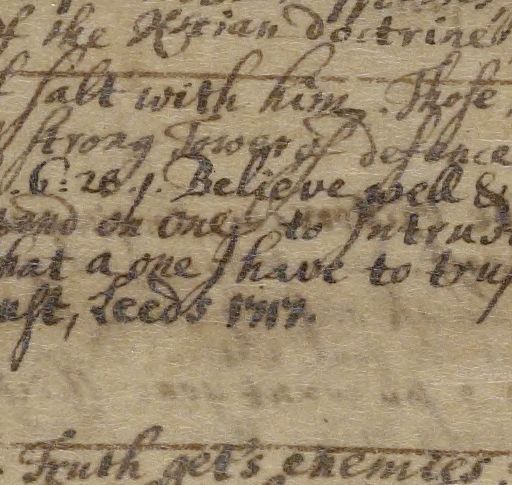 of the Arian doctrine
salt with him. Those
strong Tower of defence
. 6: 28. Believe well &
on one to Intrust
what a one I have to trust
Leeds 1717.
. Truth get's enemies